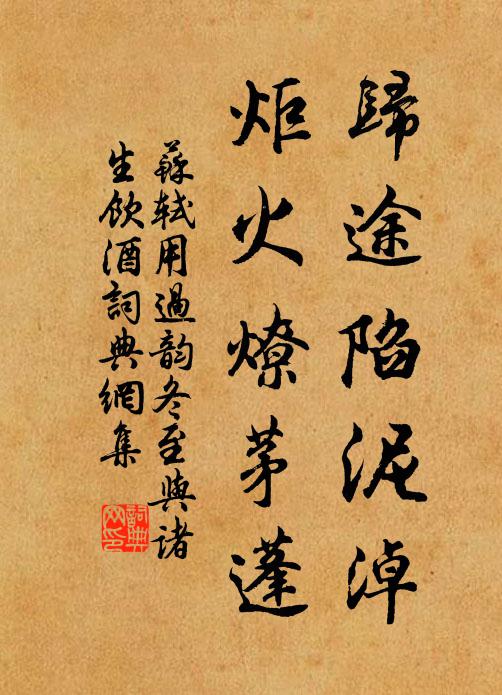 歸途陷泥淖
炬火燎茅蓬
蘇軾用過韵冬至與諸
生飲酒詞典網集
詞典
网印